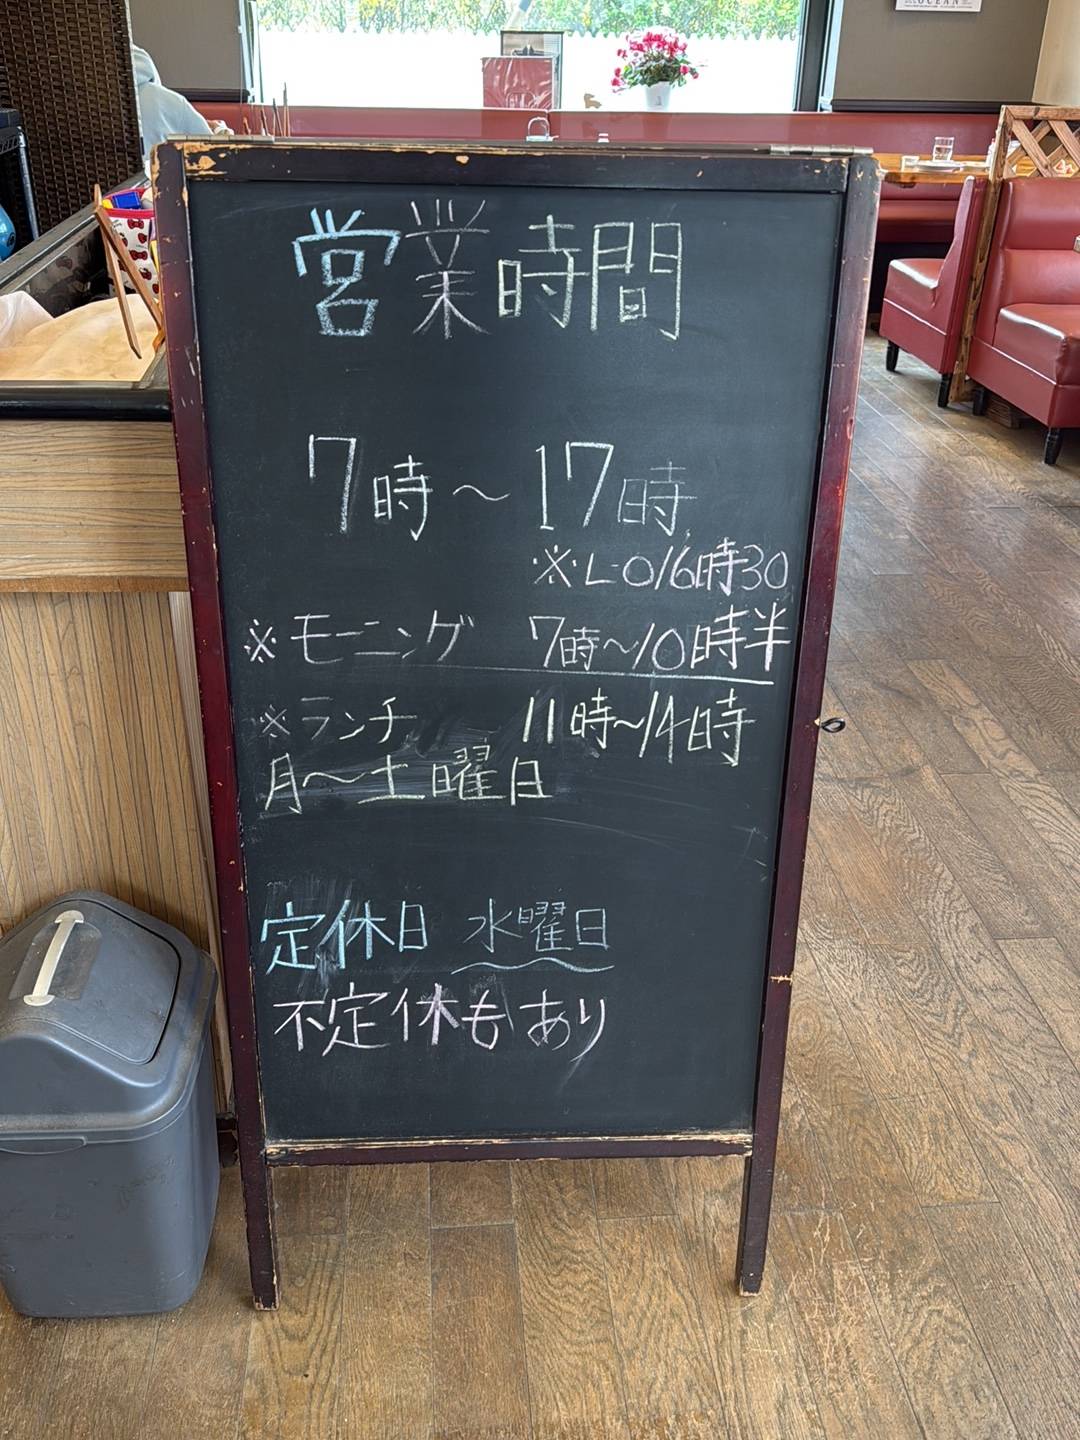 OCEAN
営業時間
7時～17時
※L・O16時30
※モーニング 7時～10時半
※ランチ 11時～14時
月～土曜日
定休日 水曜日
不定休もあり